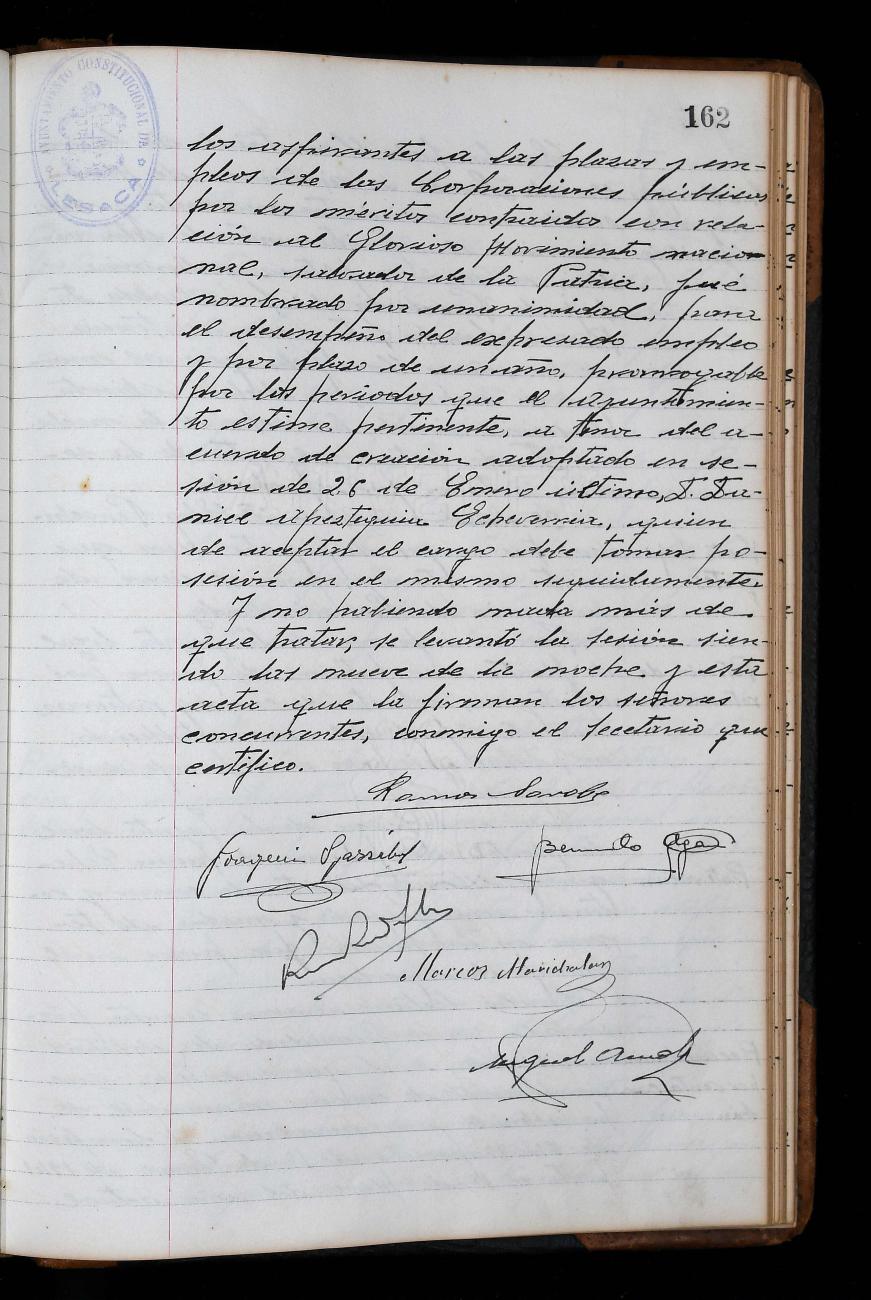 162
AYUNTAMIENTO CONSTITUCIONAL DE
LESACA
los aspirantes a las plazas y em-
pleos de las Corporaciones públicas
por los méritos contraidos con rela-
ción al Glorioso Movimiento nacio-
nal, salvador de la Patria, fué
nombrado por unanimidad, para
el desempeño del expresado empleo
y por plazo de un año, prorrogable
por los periodos que el Ayuntamien-
to estime pertinente, a tenor del a-
cuerdo de creación adoptado en se-
sión de 26 de Enero último, D. Da-
niel Apesteguia Echeverria, quien
de aceptar el cargo debe tomar po-
sesión en el mismo seguidamente.
Y no habiendo nada más de
que tratar, se levantó la sesión sien-
do las nueve de la noche y esta
acta que la firman los señores
concurrentes, conmigo el Secetario que
certifico.
Ramon Sarobe
Joaquin
Marcos Marichalar
Miguel